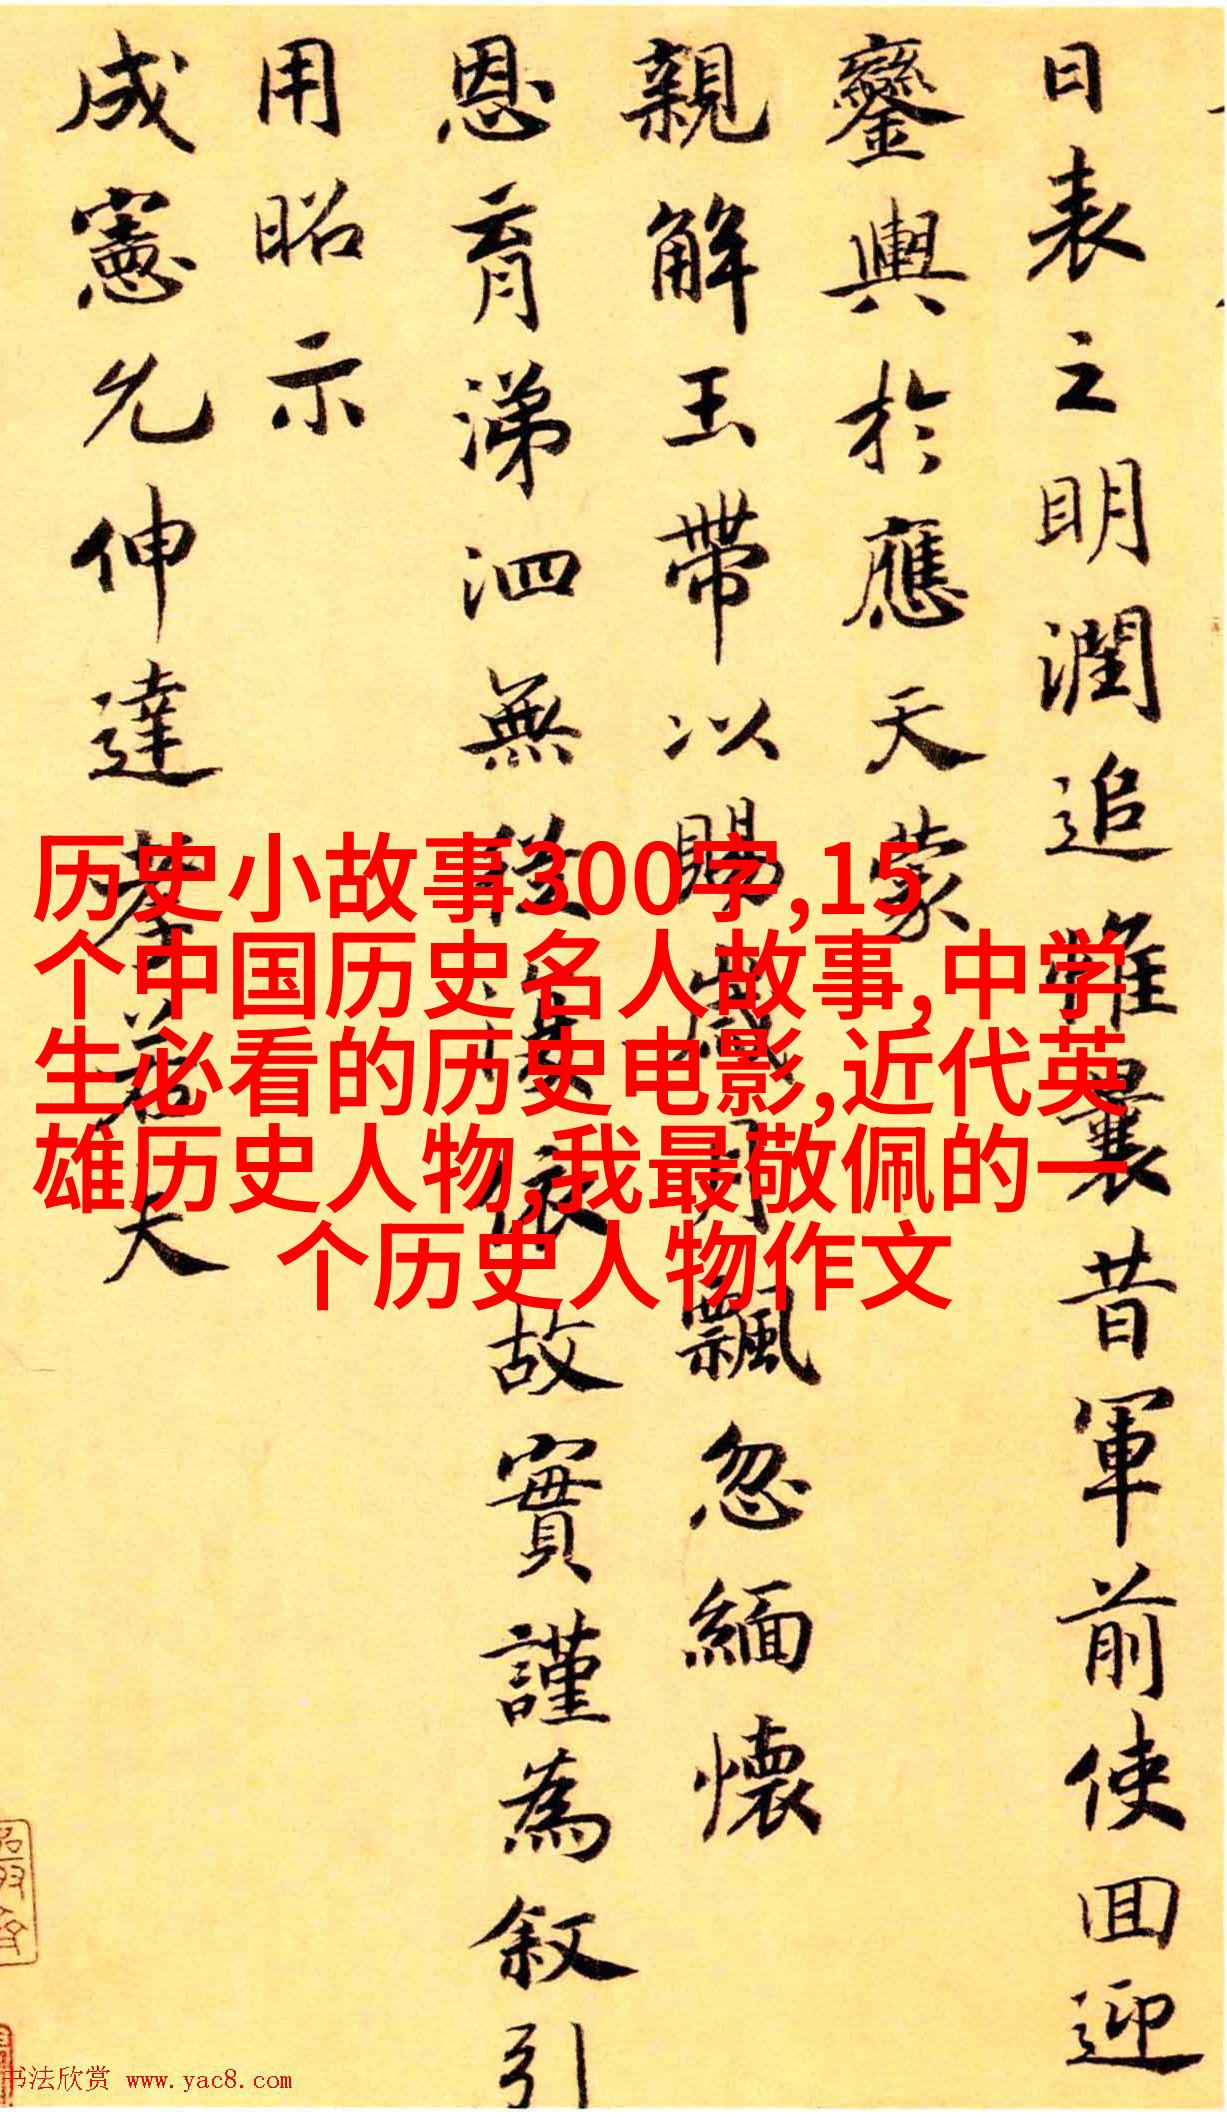 日表之明潤追惟曩昔軍前使囬迎
鑾輿於應天蒙
親解玉帶以賜歲月飄忽緬懷
恩育涕泗無從依故實謹為叙引
用昭示
成憲允伸達孝若夫
历史小故事300字,15
个中国历史名人故事,中学
生必看的历史电影,近代英
雄历史人物,我最敬佩的一
个历史人物作文
书法欣赏 www.yac8.com